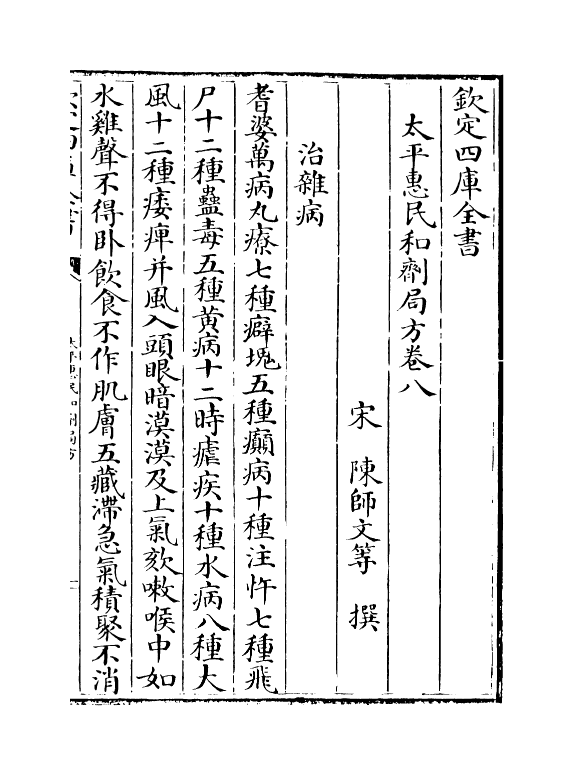 欽定四庫全書
太平惠民和劑局方卷八
宋　陳師文等　撰
治雜病
耆婆萬病丸療七種癖塊五種癲病十種注忤七種飛
尸十二種蠱毒五種黄病十二時瘧疾十種水病八種大
風十二種㾏痺并風入頭眼暗漠漠及上氣欬嗽喉中如
水雞聲不得卧飲食不作肌膚五藏滯急氣積聚不消
太平惠民和劑局方